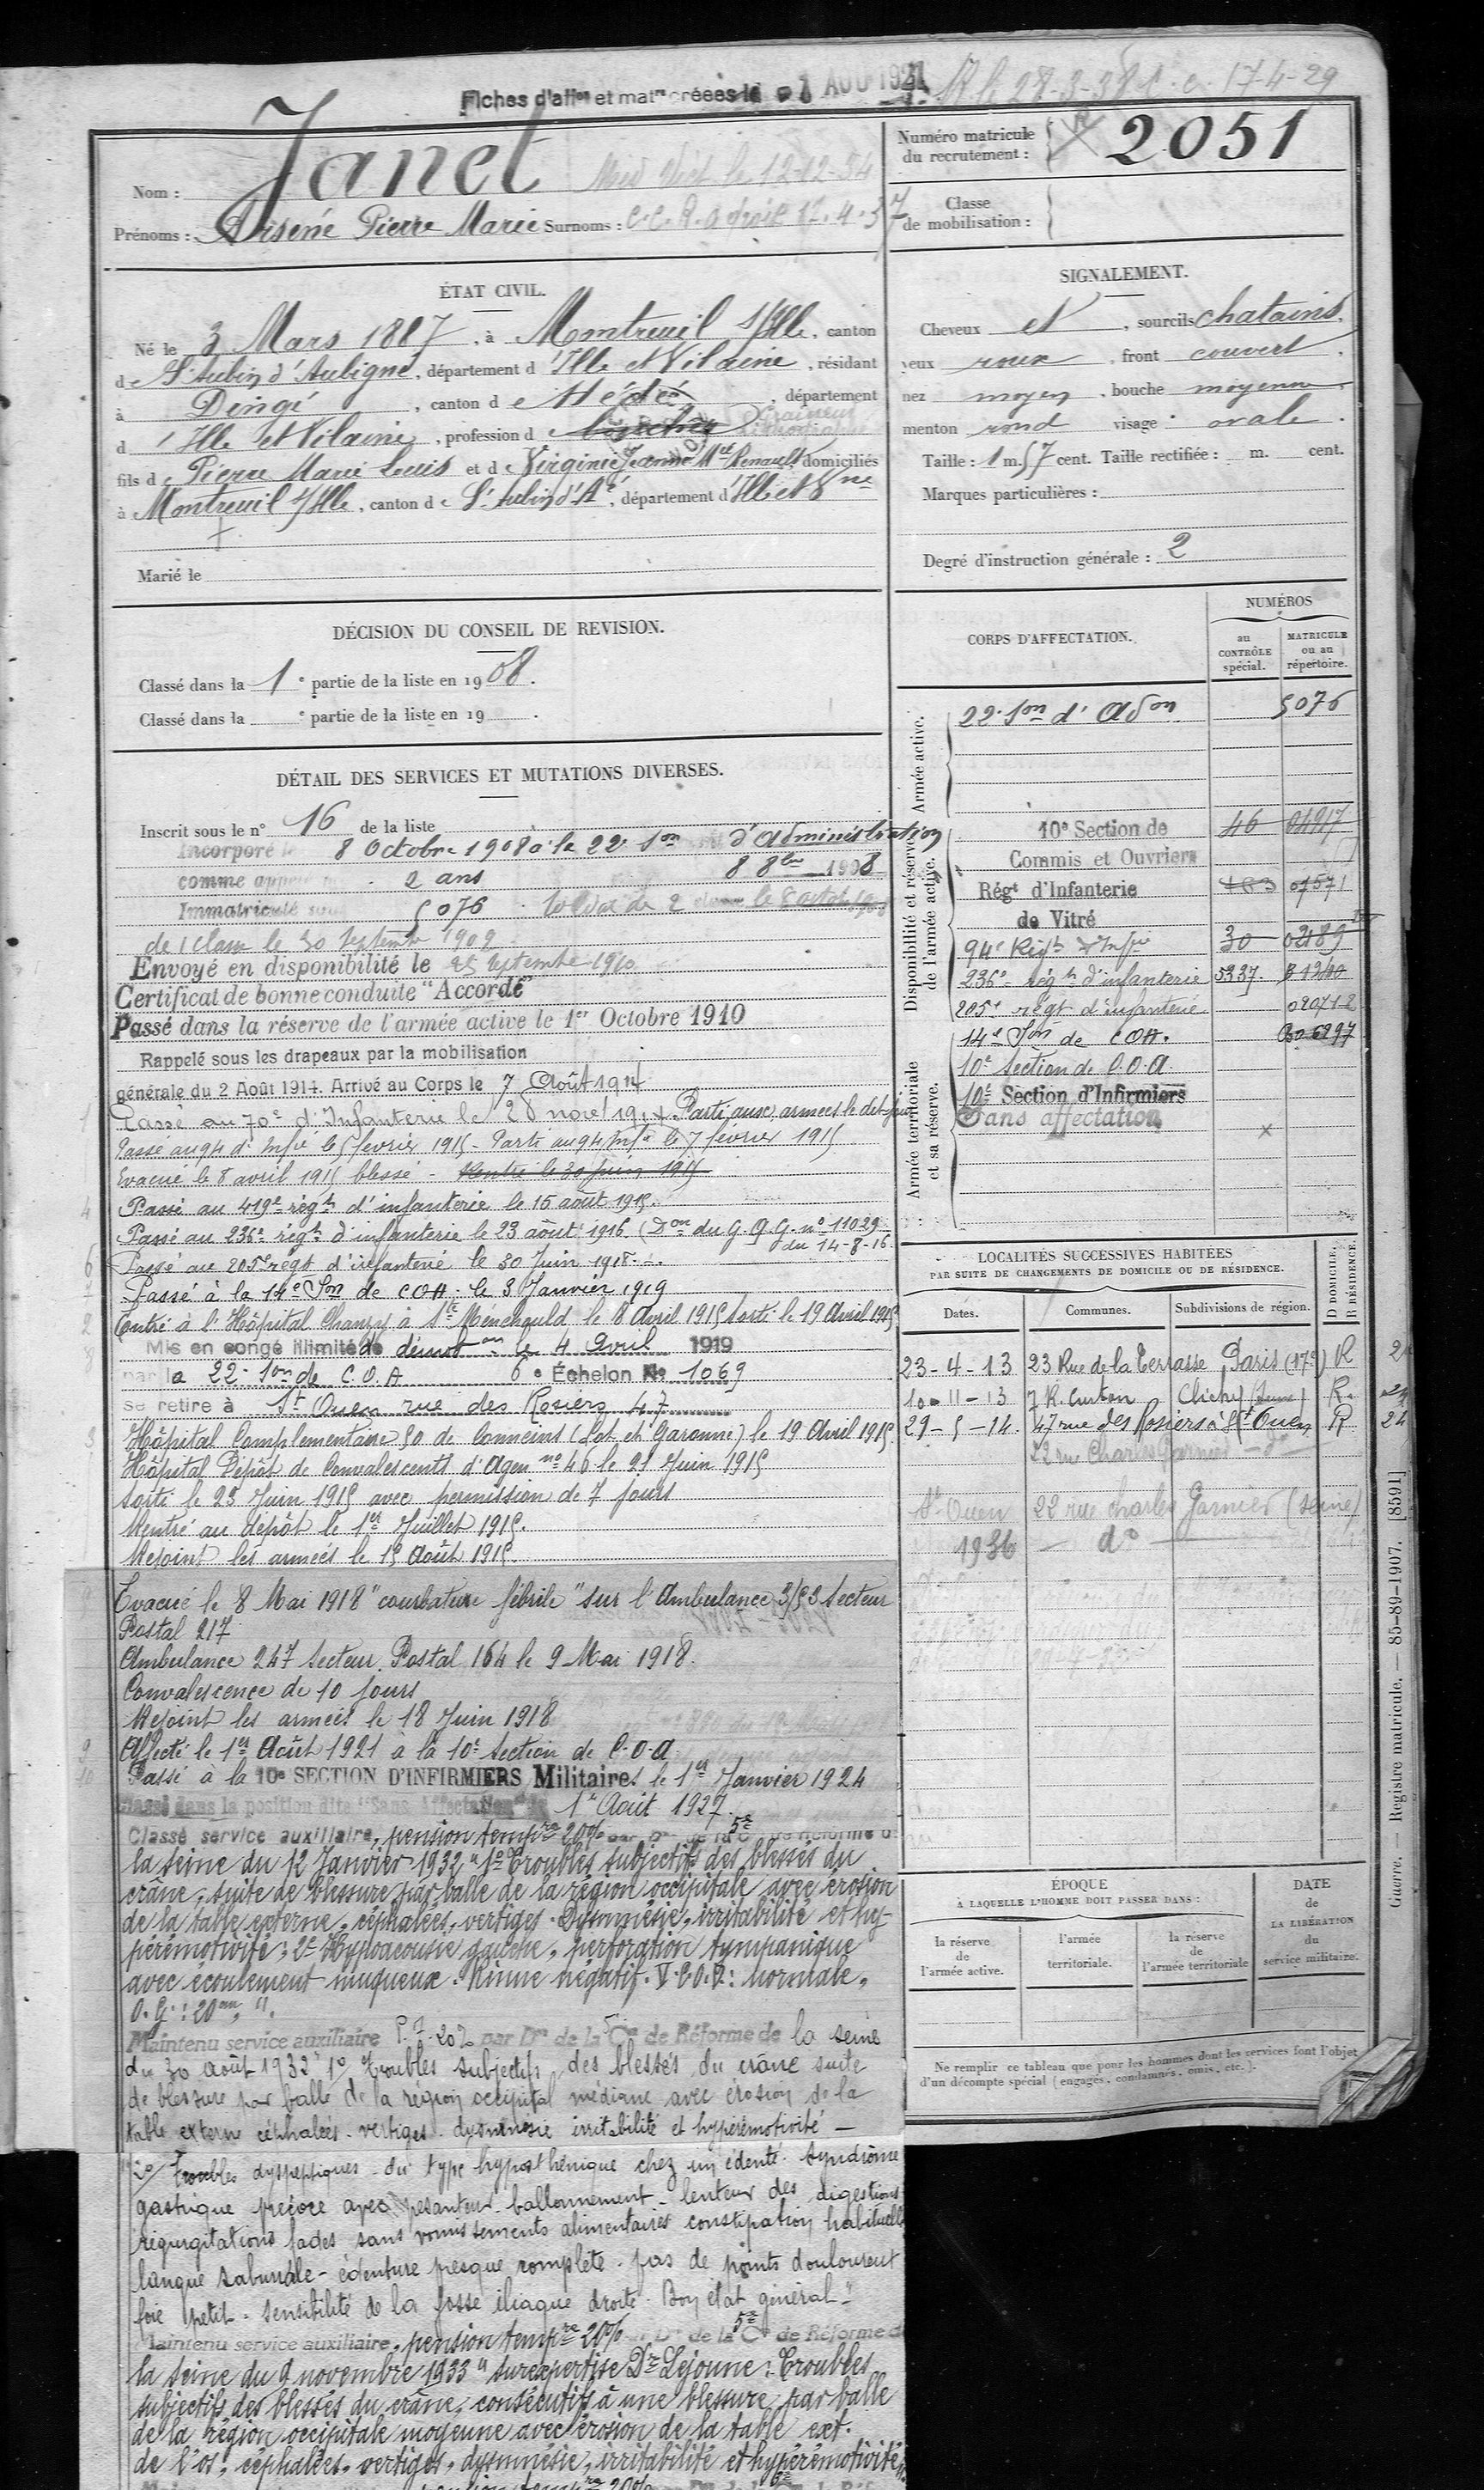 Fiches d'aff^on et mat^le créées le 1 AOU 1921
R le 28-3-38 C. 17-4-29
Nom : Janet
Med Vict le 12-12-34
Prénoms : Arsène Pierre Marie Surnoms : C.C.R. a droit 12.4.37
ÉTAT CIVIL.
Né le 3 Mars 1887, à Montreuil s/Ille, canton
d e St Aubin d'Aubigné, département d'Ille et Vilaine, résidant
à Dingé, canton d e Hédé, département
d'Ille et Vilaine, profession d e
fils d e Pierre Marie Louis et d e Virginie Jeanne Mie Renault domiciliés
à Montreuil s/Ille, canton d e St Aubin d'Aé, département d'Ille et Vne
Marié le
DÉCISION DU CONSEIL DE REVISION.
Classé dans la 1e partie de la liste en 1908.
Classé dans la e partie de la liste en 19 .
DÉTAIL DES SERVICES ET MUTATIONS DIVERSES.
Inscrit sous le n° 16 de la liste
Incorporé le 8 Octobre 1908 à la 22e Son d'Administration
comme appelé 2 ans 8 8bre 1908
Immatriculé sous 5076 soldat de 2 classe le 8 octobre 1908
de 1 classe le 30 Septembre 1909
Envoyé en disponibilité le 25 septembre 1910
Certificat de bonne conduite "Accordé"
Passé dans la réserve de l'armée active le 1er Octobre 1910
Rappelé sous les drapeaux par la mobilisation
générale du 2 Août 1914. Arrivé au Corps le 7 Août 1914
Passé au 70e d'Infanterie le 28 nove 1914. Parti aux armées le dit jour
Passé au 94 d'Infie le 5 février 1915 - Parti au 94 Infie le 7 février 1915
Evacué le 8 avril 1915 blessé - Rentré le 30 Juin 1915
Passé au 419e régt d'infanterie le 15 août 1915.
Passé au 236e régt d'infanterie le 23 août 1916 (Don du G.Q.G. n° 11029
du 14-8-16
Passé au 205e régt d'infanterie le 30 Juin 1918.
Passé à la 14e Son de COA. le 3 Janvier 1919
Entré à l'Hôpital Chanzy à Ste Ménehould le 8 Avril 1915 sorti le 19 Avril 1915
Mis en congé illimité de démobon le 4 Avril 1919
par la 22e Son de C.O.A 6e Échelon No 1069
se retire à St Ouen rue des Rosiers 47
Hôpital Complémentaire 50 de Tonneins (Lot et Garonne) le 19 Avril 1915
Hôpital Dépôt de Convalescents d'Agen no 46 le 21 Juin 1915
sorti le 23 Juin 1915 avec permission de 7 jours
Rentré au dépôt le 1er Juillet 1915.
Rejoint les armées le 15 Août 1915.
Evacué le 8 Mai 1918 "courbature fébrile" sur l'Ambulance 3/53 Secteur
Postal 217
Ambulance 247 Secteur Postal 164 le 9 Mai 1918.
Convalescence de 10 jours
Rejoint les armées le 18 Juin 1918
Affecté le 1er Août 1921 à la 10e Section de C.O.A.
Passé à la 10e SECTION D'INFIRMIERS Militaires le 1er Janvier 1924
Classé dans la position dite "Sans Affectation" le 1er Août 1927.
Classé service auxiliaire, pension tempre 20% par Don de la 5e Con de Réforme de
la Seine du 12 Janvier 1932 "1° Troubles subjectifs des blessés du
crâne, suite de blessure par balle de la région occipitale avec érosion
de la table externe, céphalées, vertiges. Dysmnésie, irritabilité et hy-
pérémotivité; 2° Hypoacousie gauche, perforation tympanique
avec écoulement muqueux. Rinne négatif. V.C.O.D: normale.
O.G: 20cm."
Maintenu service auxiliaire P.T. 20% par Don de la 5e Con de Réforme de la Seine
du 30 août 1932 "1° troubles subjectifs des blessés du crâne suite
de blessure par balle de la région occipital médiane avec érosion de la
table externe céphalées - vertiges - dysmnésie irritabilité et hypérémotivité —
2°/ Troubles dyspeptiques du type hyposthénique chez un édenté. syndrome
gastrique précoce avec pesanteur - ballonnement - lenteur des digestions
régurgitations fades sans vomissements alimentaires constipation habituelle
langue saburrale - édenture presque complète - pas de points douloureux
foie petit - sensibilité de la fosse iliaque droite. Bon état général -"
Maintenu service auxiliaire, pension tempre 20% par Don de la 5e Con de Réforme de
la Seine du 9 novembre 1933 "surexpertise Dr Lejonne : Troubles
subjectifs des blessés du crâne, consécutifs à une blessure par balle
de la région occipitale moyenne avec érosion de la table ext.
de l'os, céphalées, vertiges, dysmnésie, irritabilité et hypérémotivité."
Numéro matricule
du recrutement : 2051
Classe
de mobilisation :
SIGNALEMENT.
Cheveux et, sourcils chatains.
yeux roux, front couvert.
nez moyen, bouche moyenne
menton rond visage : ovale.
Taille : 1 m. 57 cent. Taille rectifiée : m. cent.
Marques particulières :
Degré d'instruction générale : 2
CORPS D'AFFECTATION.
NUMÉROS
au CONTRÔLE spécial.
MATRICULE ou au répertoire.
Armée active.
22e Son d'Adon 5076
Disponibilité et réserve de l'armée active.
10e Section de 46 04917
Commis et Ouvriers
Régt d'Infanterie 07571
de Vitré
94e Régt d'Infie 30 02489
236e régt d'infanterie 5337. B 1240
205e régt d'infanterie 020712
Armée territoriale et sa réserve.
14e Son de COA. 306297
10e Section de C.O.A.
10e Section d'Infirmiers
Sans affectation
LOCALITÉS SUCCESSIVES HABITÉES
PAR SUITE DE CHANGEMENTS DE DOMICILE OU DE RÉSIDENCE.
D DOMICILE.
R RÉSIDENCE.
Dates. Communes. Subdivisions de région.
23-4-13 23 Rue de la Terrasse Paris (17e) R
10-11-13 7 R. Curton Clichy (Seine) R.
29-5-14. 47 rue des Rosiers à St Ouen R 24
22 rue Charles Garnier - do -
St Ouen 22 rue Charles Garnier (Seine)
1936 — do —
ÉPOQUE
À LAQUELLE L'HOMME DOIT PASSER DANS :
DATE
de
LA LIBÉRATION
du
service militaire.
la réserve de l'armée active.
l'armée territoriale.
la réserve de l'armée territoriale
Ne remplir ce tableau que pour les hommes dont les services font l'objet
d'un décompte spécial (engagés, condamnés, omis, etc.).
Guerre. — Registre matricule. — 85-89-1907. [8591]